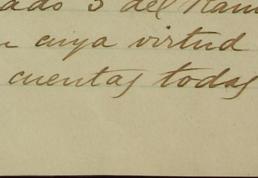 ado 3 del Ram
cuya virtud
cuentas todas